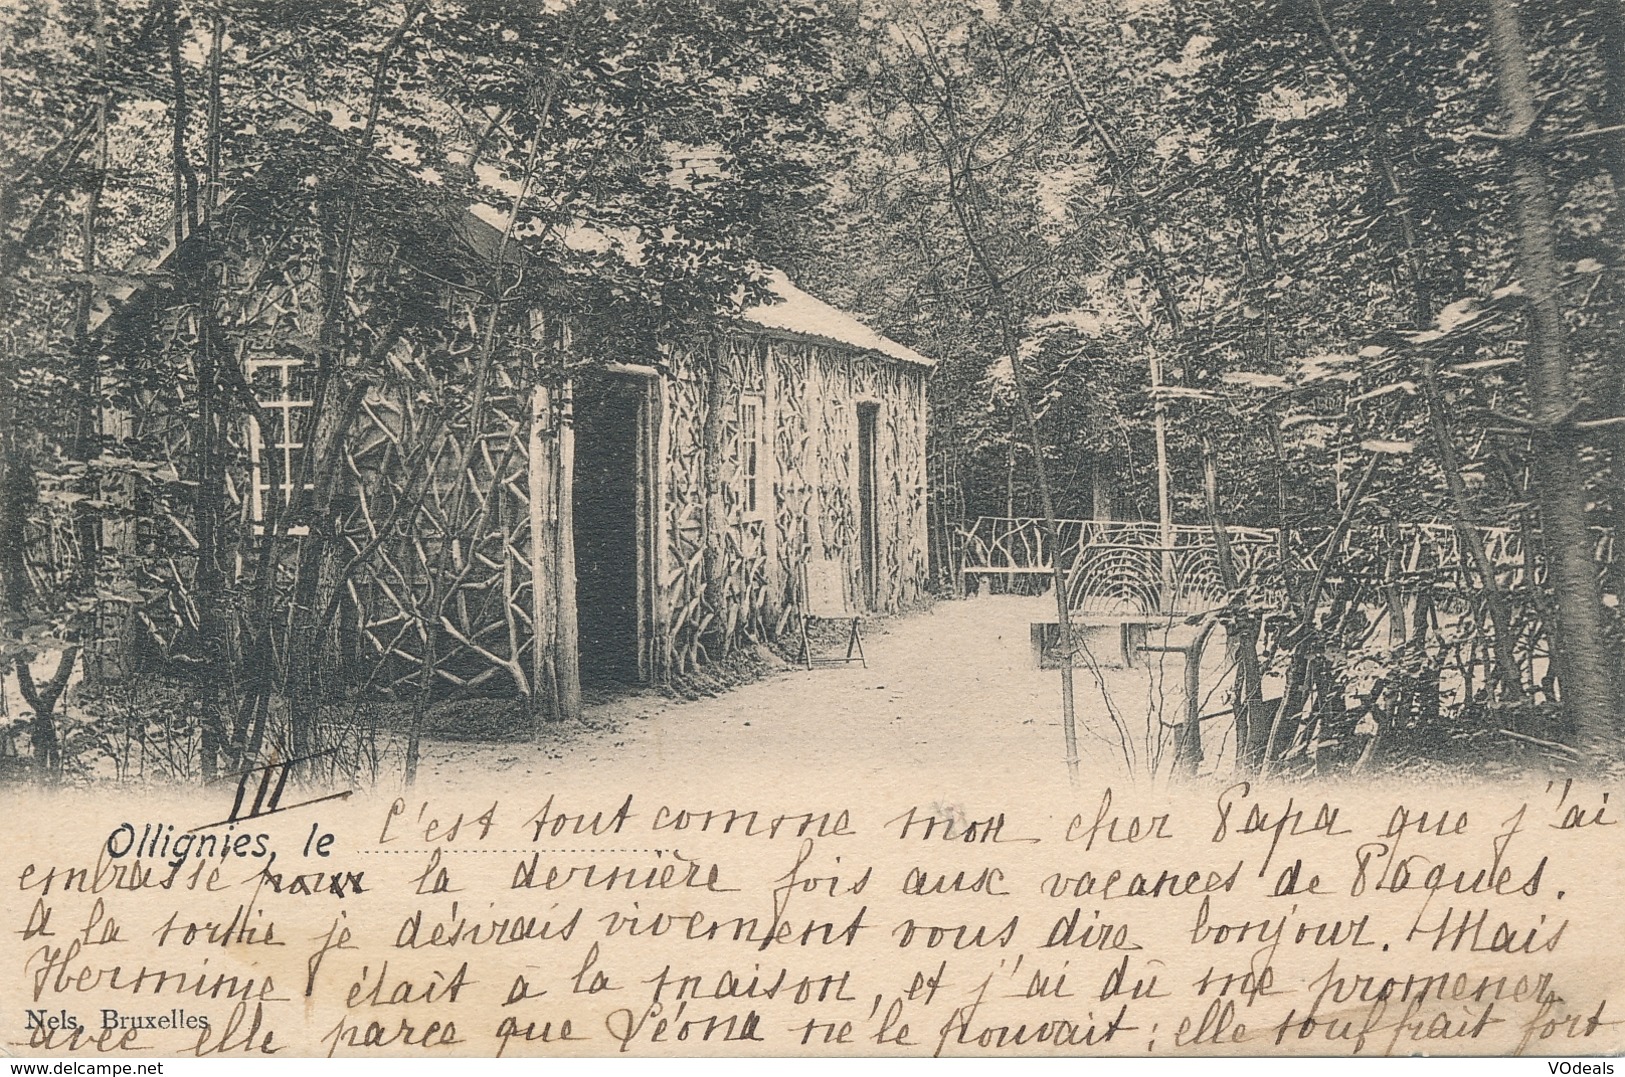 III
C'est tout comme mon cher Papa que j'ai
Ollignies, le
embrassé pour la dernière fois aux vacances de Pâques.
A la sortie je désirais vivement vous dire bonjour. Mais
Herminie était à la maison, et j'ai dû me promener
Nels, Bruxelles
avec elle parce que Léona ne le pouvait; elle souffrait fort
delcampe.net
VOdeals